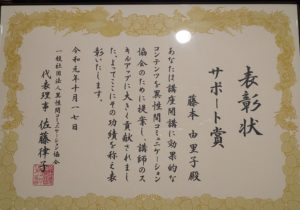 表彰状
サポート賞
藤本 由里子殿
あなたは講座開講に効果的な
コンテンツを異性間コミュニケーション
協会のために提案し、講師のス
キルアップに大きく貢献されまし
た。よってここにその功績を称え表
彰いたします。
令和元年十月一七日
一般社団法人異性間コミュニケーション協会
代表理事 佐藤律子